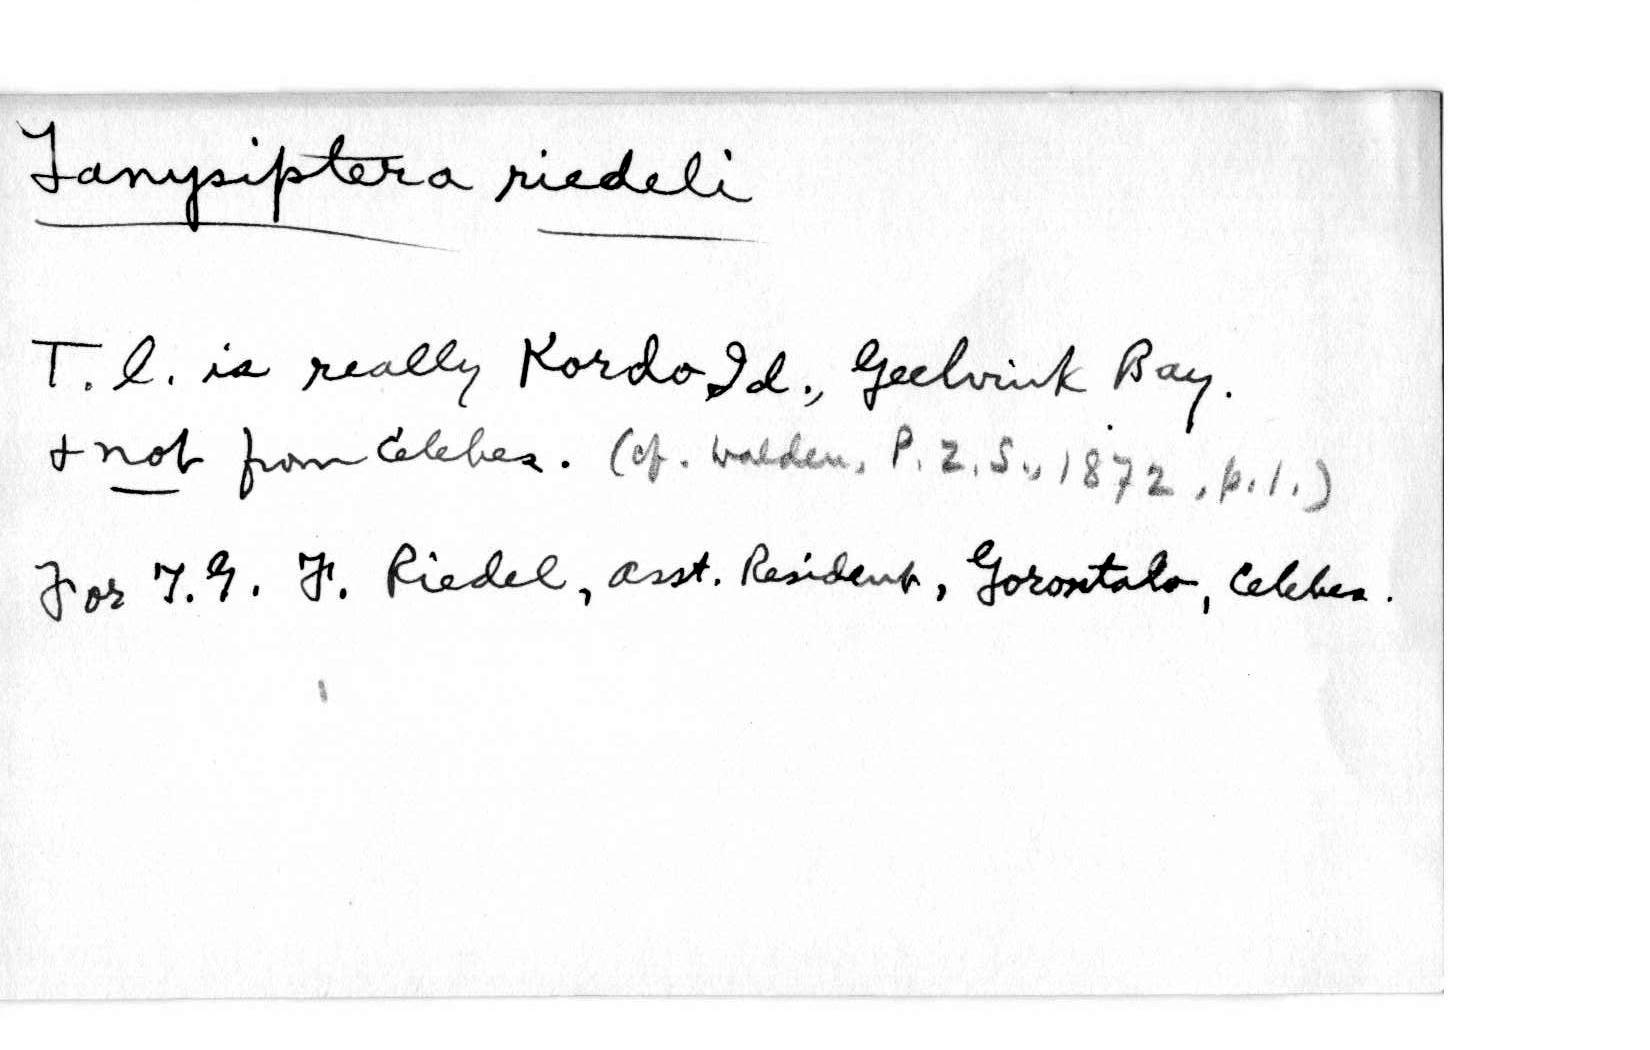 Tanysiptera riedeli
T. l. is really Kordo Id., Geelvink Bay.
+ not from Celebes. (cf. Walden, P. Z. S., 1872, p. 1.)
For J. G. F. Riedel, Asst. Resident, Gorontalo, Celebes.